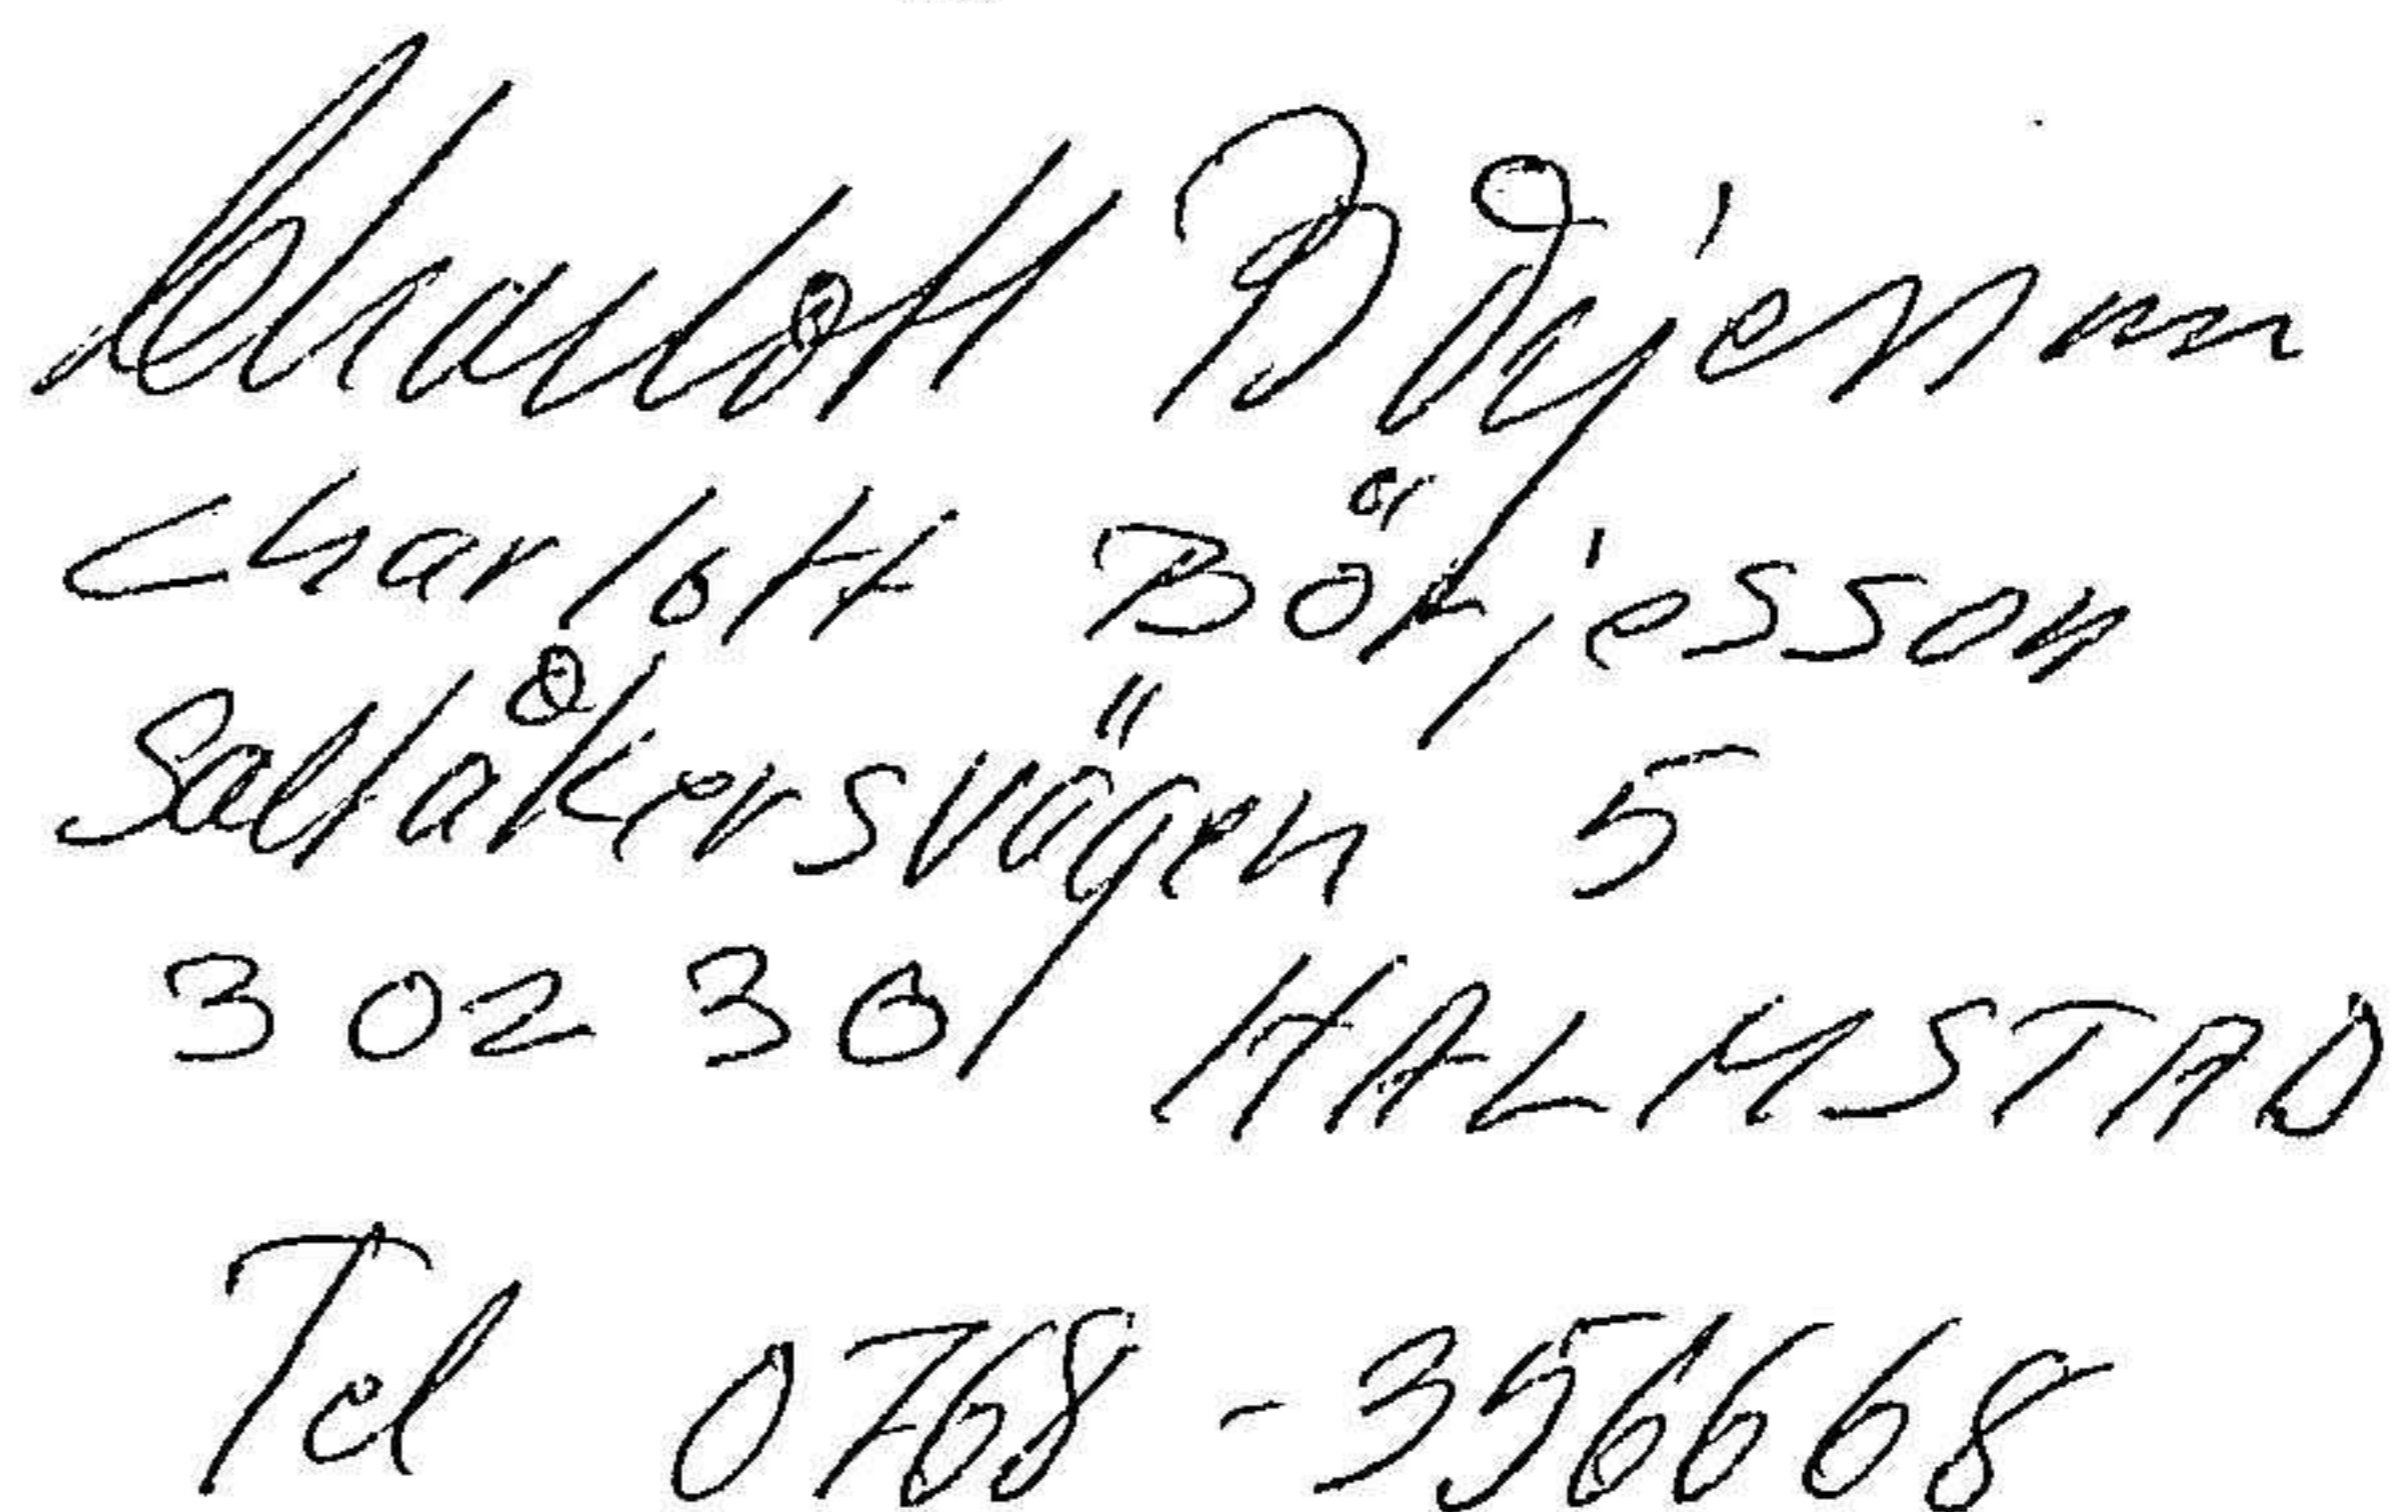 Charlott Börjesson
Charlott Börjesson
Saltåkersvägen 5
302 30 HALMSTAD
Tel 0768-356668